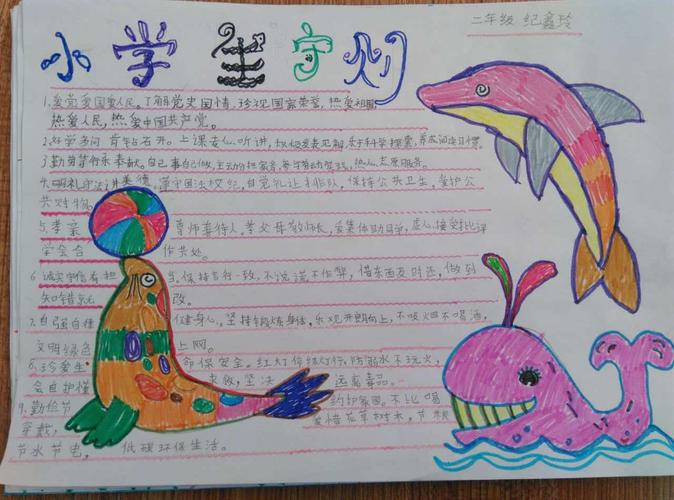 二年级 纪鑫玲
小学生守则
1.爱党爱国爱人民。了解党史国情,珍视国家荣誉,热爱祖国
热爱人民,热爱中国共产党。
2.好学多问肯 上课专心听讲,积极发表见解,乐于科学探索,养成阅读习惯。
3.勤劳笃行乐奉献。自己事自己做,主动分担家务,参与劳动实践,热心志愿服务。
4.明礼守法讲美德,遵守国法校纪,自觉礼让排队,保持公共卫生,爱护公
共财物。
5.孝亲 尊师善待人。孝父母敬师长,爱集体助同学,虚心接受批评
学会合 作共处。
6 诚实守信有担 当。保持言行一致,不说谎不作弊,借东西及时还,做到
知错就 改。
7.自强自 健身心。坚持锻炼身体,乐观开朗向上,不吸烟不喝酒,
文明绿色 上网。
8.珍爱生 命保安全。红灯停绿灯行,防溺水不玩火,
会自护懂 求救,坚决 远离毒品。
9.勤俭节 约护家园。不比吃喝
穿戴, 爱惜花草树木,节粮
节水节电, 低碳环保生活。